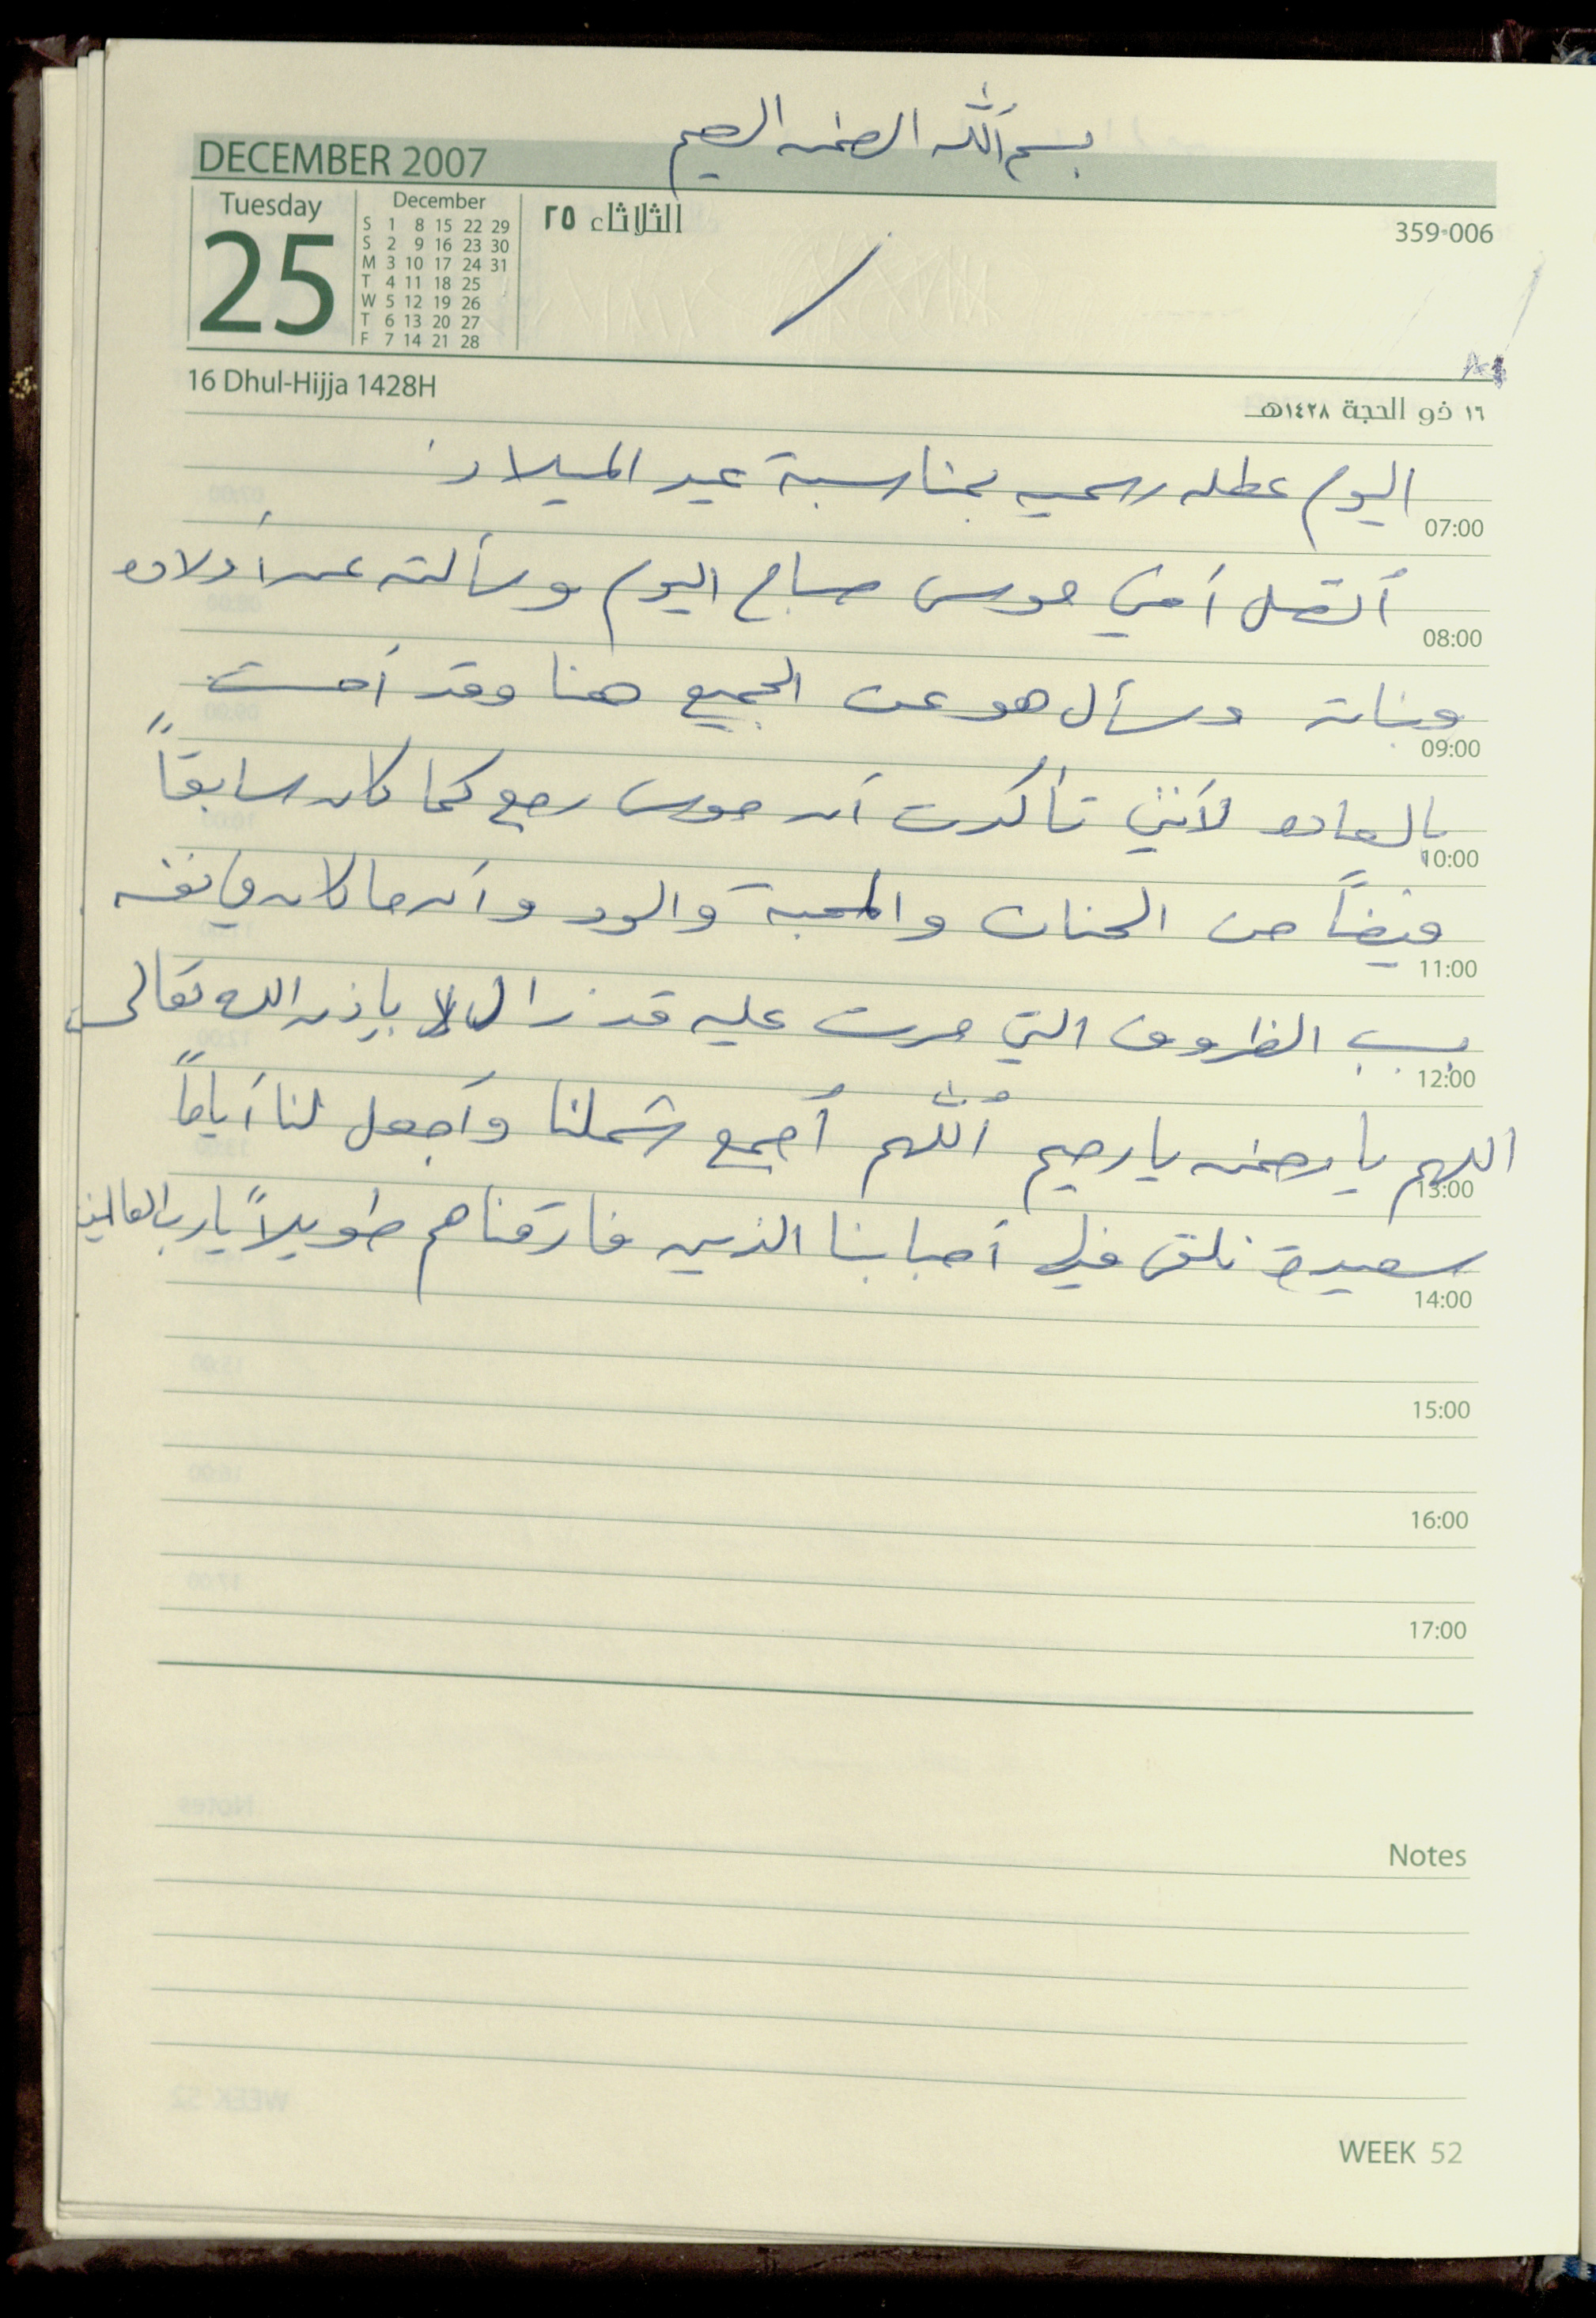 بسم الله الرحمن الرحيم
DECEMBER 2007
Tuesday
25
December
S 1 8 15 22 29
S 2 9 16 23 30
M 3 10 17 24 31
T 4 11 18 25
W 5 12 19 26
T 6 13 20 27
F 7 14 21 28
الثلاثاء ٢٥
359-006
16 Dhul-Hijja 1428H
١٦ ذو الحجة ١٤٢٨هـ
اليوم عطله رسميه بمناسبة عيد الميلاد
07:00
أتصل أخي موسى صباح اليوم وسألته عن أولاده
08:00
وبناته وسأل هو عن الجميع هنا وقد أحسست
09:00
بالسعاده لأنني تأكدت أن موسى رجع كما كان سابقاً
10:00
فيضاً من الحنان والمحبة والود وأن ما كان في نفسه
11:00
بسبب الظروف التي مرت عليه قد زال بإذن الله تعالى
12:00
اللهم يا رحمن يا رحيم أللهم أجمع شملنا وأجعل لنا أياماً
13:00
سعيدة نلتقي فيها أحبابنا الذين فارقناهم طويلاً يارب العالمين
14:00
15:00
16:00
17:00
Notes
WEEK 52